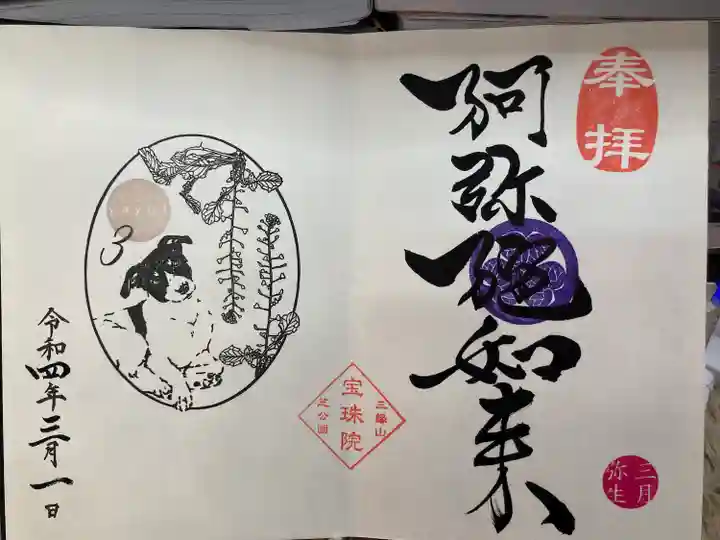 奉拝
阿弥陀如来
三月
弥生
三縁山
宝珠院
芝公園
3
令和四年三月一日